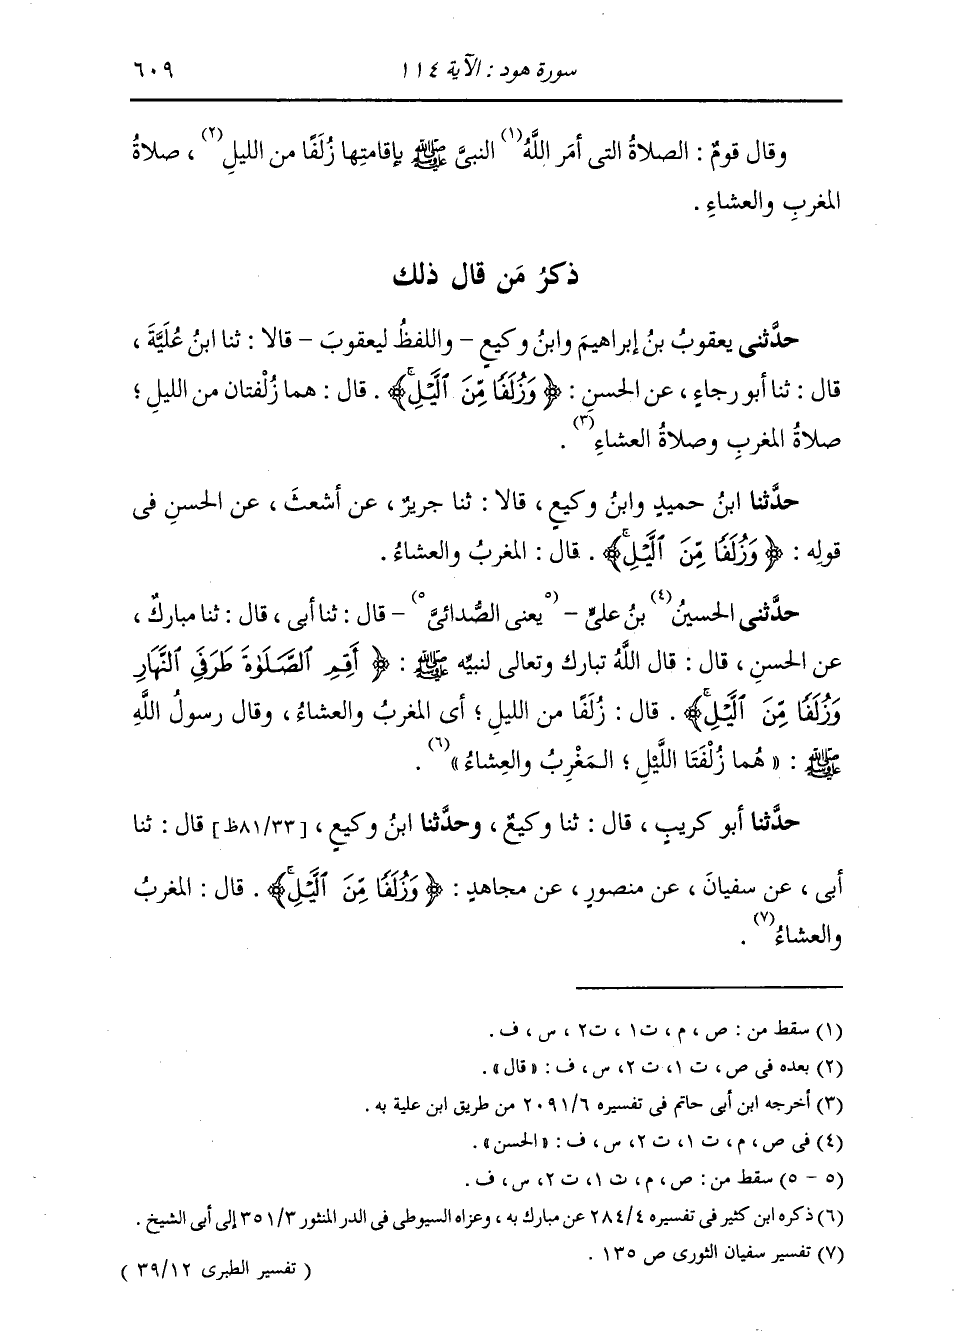 سورة هود : الآية ١١٤ ٦٠٩
وقال قومٌ : الصلاةُ التى أمَر اللَّهُ(١) النبىَّ ﷺ بإقامتِها زُلَفًا من الليلِ(٢) ، صلاةُ
المغربِ والعشاءِ .
ذكرُ مَن قال ذلك
حدَّثنى يعقوبُ بنُ إبراهيمَ وابنُ وكيعٍ – واللفظُ ليعقوبَ – قالا : ثنا ابنُ عُلَيَّةَ ،
قال : ثنا أبو رجاءٍ ، عن الحسنِ : ﴿ وَزُلَفًا مِّنَ ٱلَّيْلِۚ ﴾ . قال : هما زُلْفتان من الليلِ ؛
صلاةُ المغربِ وصلاةُ العشاءِ(٣) .
حدَّثنا ابنُ حميدٍ وابنُ وكيعٍ ، قالا : ثنا جريرٌ ، عن أشعثَ ، عن الحسنِ فى
قولِه : ﴿ وَزُلَفًا مِّنَ ٱلَّيْلِۚ ﴾ . قال : المغربُ والعشاءُ .
حدَّثنى الحسينُ(٤) بنُ علىٍّ – (٥ يعنى الصُّدائىَّ ٥) – قال : ثنا أبى ، قال : ثنا مباركٌ ،
عن الحسنِ ، قال : قال اللَّهُ تبارك وتعالى لنبيِّه ﷺ : ﴿ أَقِمِ ٱلصَّلَوٰةَ طَرَفَىِ ٱلنَّهَارِ
وَزُلَفًا مِّنَ ٱلَّيْلِۚ ﴾ . قال : زُلَفًا من الليلِ ؛ أى المغربُ والعشاءُ ، وقال رسولُ اللَّهِ
ﷺ : « هُما زُلْفَتَا اللَّيْلِ ؛ المَغْرِبُ والعِشاءُ »(٦) .
حدَّثنا أبو كريبٍ ، قال : ثنا وكيعٌ ، وحدَّثنا ابنُ وكيعٍ ، [٨١/٣٣ظ] قال : ثنا
أبى ، عن سفيانَ ، عن منصورٍ ، عن مجاهدٍ : ﴿ وَزُلَفًا مِّنَ ٱلَّيْلِۚ ﴾ . قال : المغربُ
والعشاءُ(٧) .
(١) سقط من : ص ، م ، ت١ ، ت٢ ، س ، ف .
(٢) بعده فى ص ، ت ١، ت ٢، س ، ف : « قال » .
(٣) أخرجه ابن أبى حاتم فى تفسيره ٢٠٩١/٦ من طريق ابن علية به .
(٤) فى ص ، م ، ت ١، ت ٢، س ، ف : « الحسن » .
(٥ – ٥) سقط من : ص ، م ، ت ١، ت ٢، س ، ف .
(٦) ذكره ابن كثير فى تفسيره ٢٨٤/٤ عن مبارك به ، وعزاه السيوطى فى الدر المنثور ٣٥١/٣ إلى أبى الشيخ .
(٧) تفسير سفيان الثورى ص ١٣٥ .
( تفسير الطبرى ٣٩/١٢ )